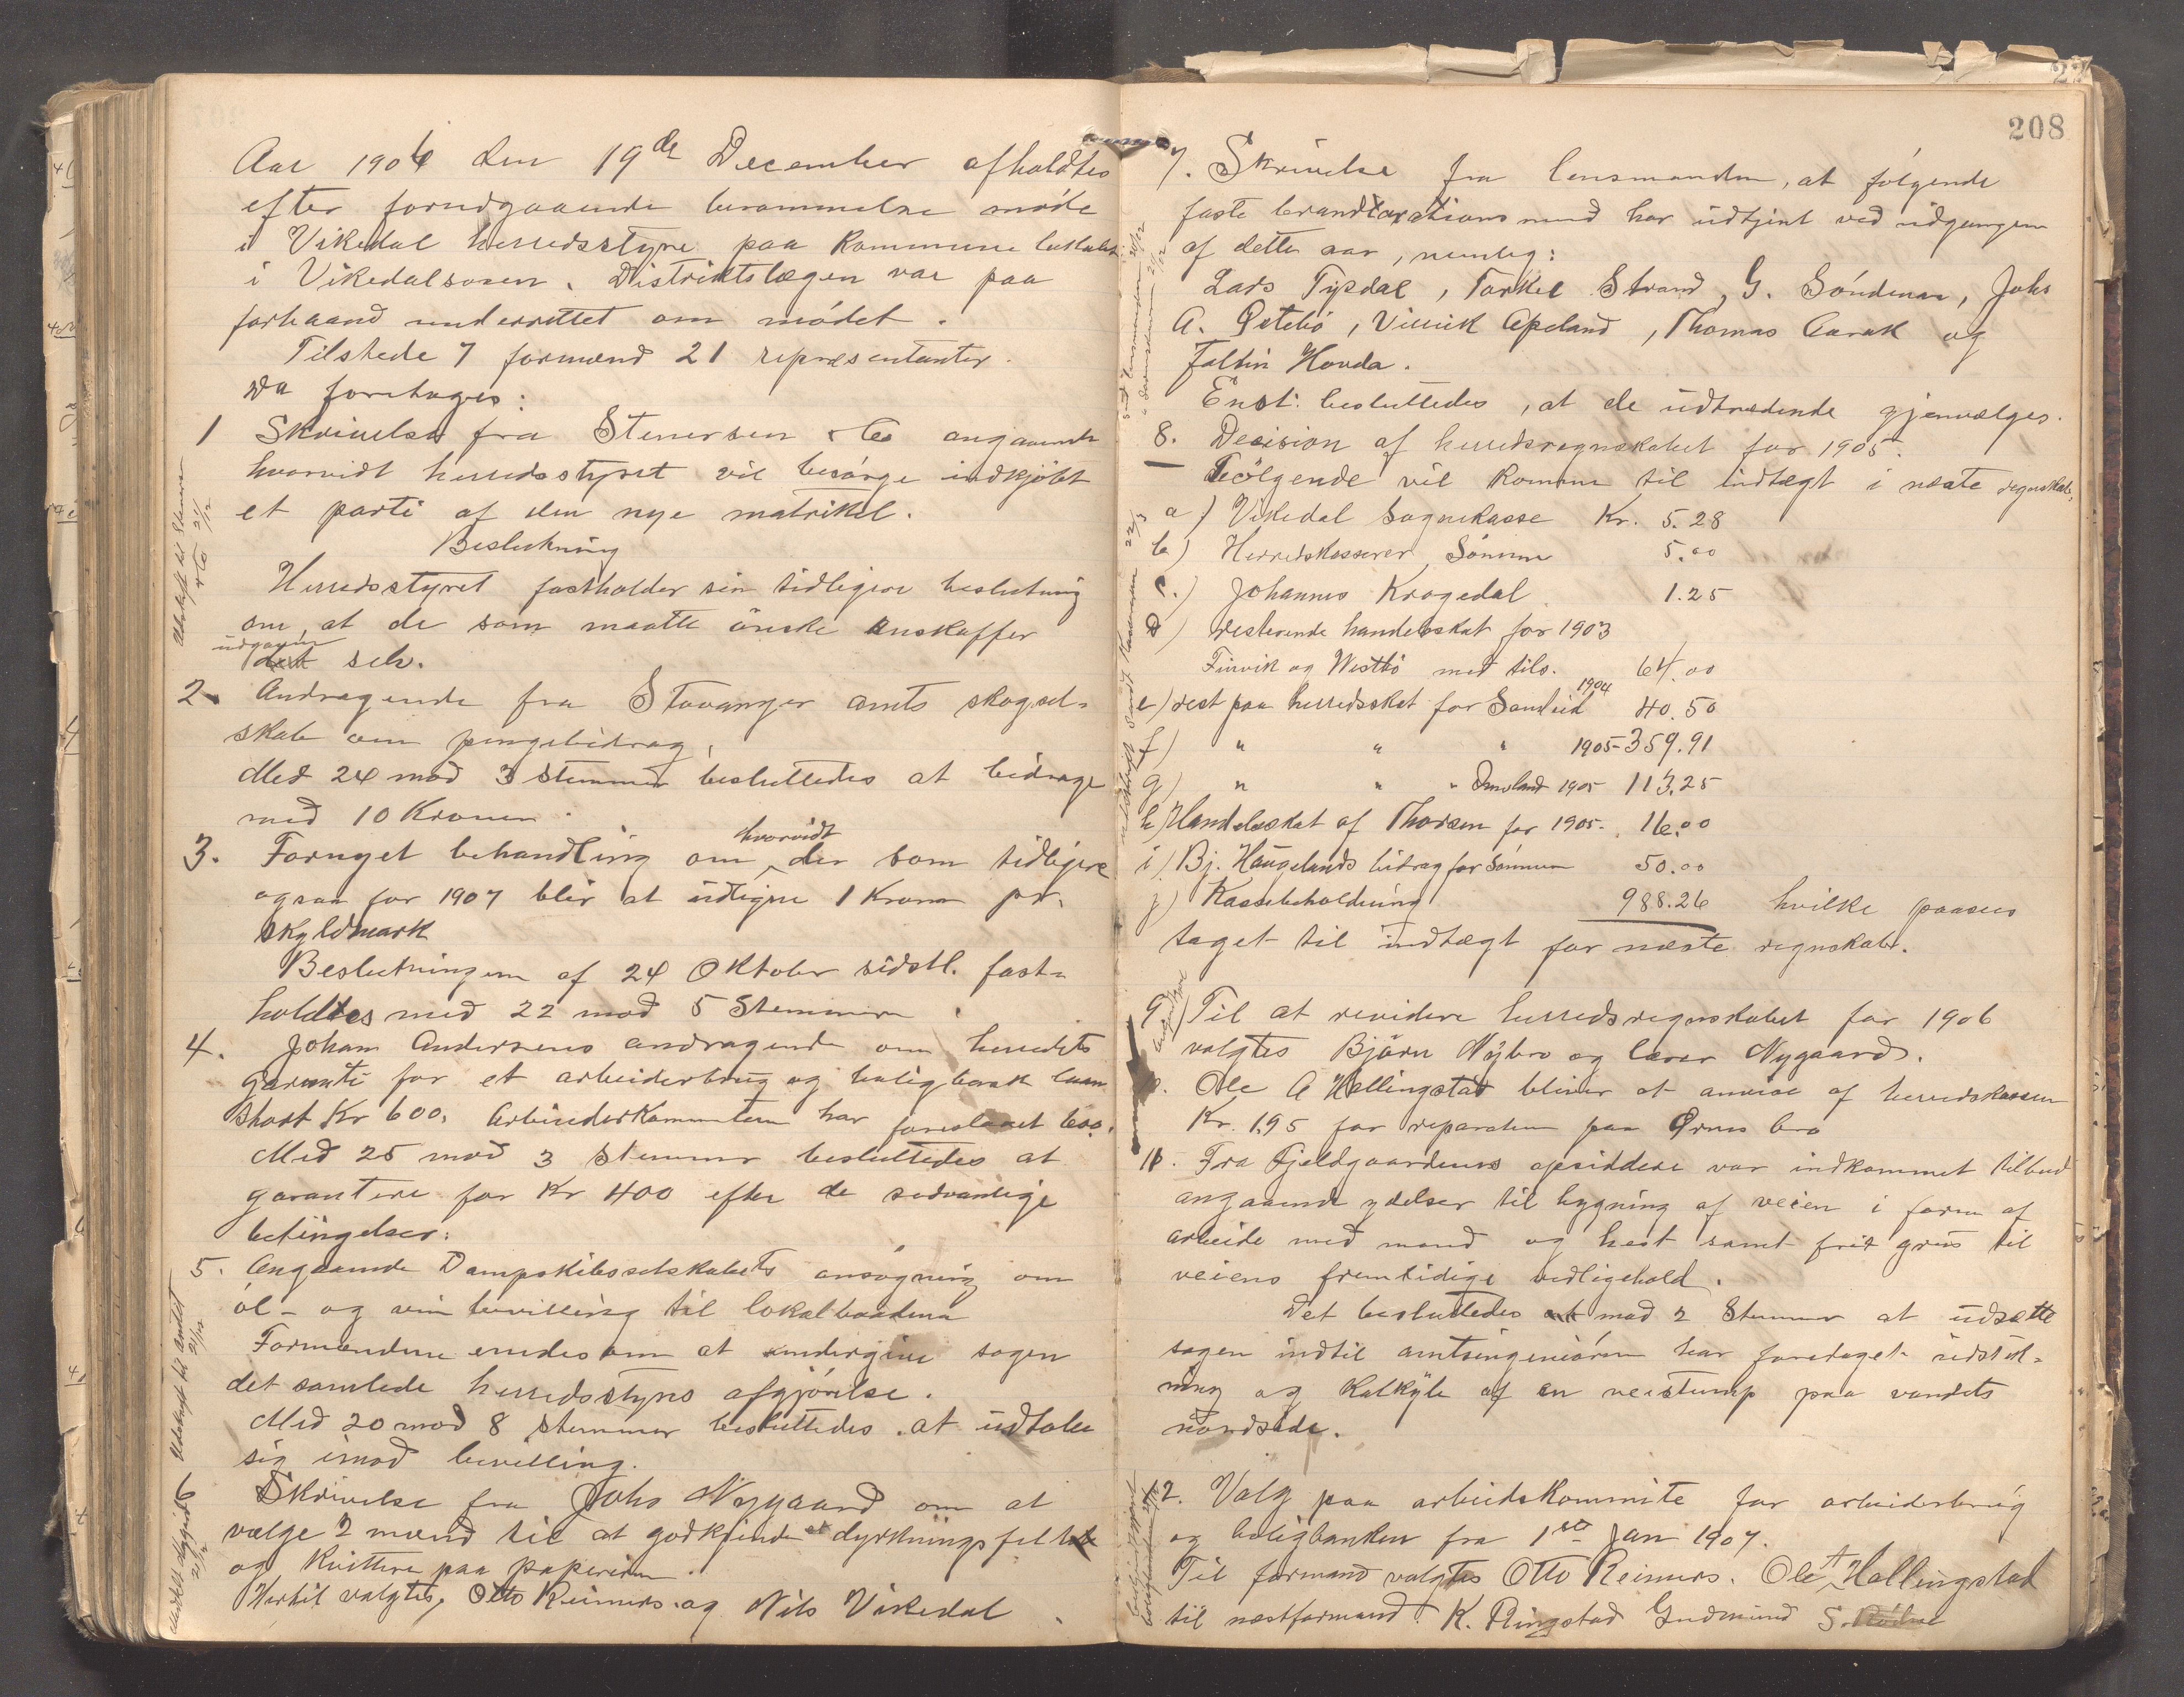 Aar 1906 den 19de December afholdtes
efter forudgaaende berammelse møde
i Vikedal herredsstyre paa Kommune lokalet
i Vikedalsosen. Distriktslægen var paa
forhaand underrettet om mödet.
Tilstede 7 formænd 21 repræsentanter.
Da foretoges:
1 Skrivelse fra Stenersen & Co angaaende
hvorvidt herredsstyret vil besörge indkjöbt
et parti af den nye matrikel.
Beslutning
Herredsstyret fastholder sin tidligere beslutning
om, at de som maatte önske anskaffer
udgaven
det selv.
Udskrift til Stenersen
& Co 21/12
2. Andragende fra Stavanger amts skogsel-
skab om pengebidrag.
Med 24 mod 3 stemmer besluttedes at bidrage
med 10 Kroner.
3. Fornyet behandling om hvorvidt der som tidligere
ogsaa for 1907 blir at udligne 1 Krone pr.
skyldmark
Beslutningen af 24 Oktober sidstl. fast-
holdtes med 22 mod 5 Stemmer.
4. Johan Andersens andragende om herredets
garanti for et arbeiderbrug og boligbank laan
stort Kr 600. Arbeiderkommiteen har foreslaaet 600.
Med 25 mod 3 stemmer besluttedes at
garantere for Kr 400 efter de sedvanlige
betingelser.
5. Angaaende Dampskibsselskabets ansögning om
öl- og vin bevilling til lokalbaadene
Formændene enedes om at undergive sagen
det samlede herredsstyres afgjörelse.
Med 20 mod 8 stemmer besluttedes at udtale
sig imod bevilling.
Udskrift til amtet
21/12
6 Skrivelse fra Johs Nygaard om at
vælge 2 mænd til at godkjende dyrkningsfelter
og kvittere paa papirerne.
Hertil valgtes, Otto Reimers og Nils Vikedal
meddelt Nygaard
21/12
208
7. Skrivelse fra lensmanden, at følgende
faste brandtaxationsmænd har udtjent ved udgangen
af dette aar, nemlig:
Lars Tysdal, Torkel Strand, G. Söndenaa, Johs
A. Östebö, Villik Apeland, Thomas Aarak og
Faltin Hovda.
Enst. besluttedes, at de udtrædende gjenvælges.
8. Decision af herredsregnskabet for 1905.
Fölgende vil komme til indtægt i næste regnskab,
a) Vikedal Sognekasse Kr. 5.28
b) Herredskasserer Sömme 5.00
c.) Johannes Krogedal 1.25
d) resterende handelsskat for 1903
Finvik og Westbö med tils. 64.00
e) rest paa herredsskat for Sandeid 1904 40.50
f) " " " 1905 - 359.91
g) " " " Imsland 1905 113.25
h) Handelsskat af Thorsen for 1905 - 16.00
i) Bj. Haugelands bidrag for Sömme 50.00
j) Kassebeholdning 988.26 hvilke paasees
taget til indtægt for næste regnskab.
9) Til at revidere herredsregnskabet for 1906
valgtes Björn Nybro og lærer Nygaard.
10. Ole A Hallingstad bliver at anvise af herredskassen
Kr. 1.95 for reparation paa Ørnes bro
11. Fra Fjeldgaardenes opsiddere var indkommet tilbud
angaaende ydelser til bygning af veien i form af
arbeide med mand og hest samt frit grus til
veiens fremtidige vedligehold.
Det besluttedes mod 2 Stemmer at udsætte
sagen indtil amtsingeniören har foretaget udstik-
ning og kalkyle af en veistump paa vandets
nordside.
12. Valg paa arbeidskommite for arbeiderbrug
og boligbanken fra 1ste Jan 1907.
Til formand valgtes Otto Reimers. Ole A Hallingstad
til næstformand. K. Ringstad Gudmund S.